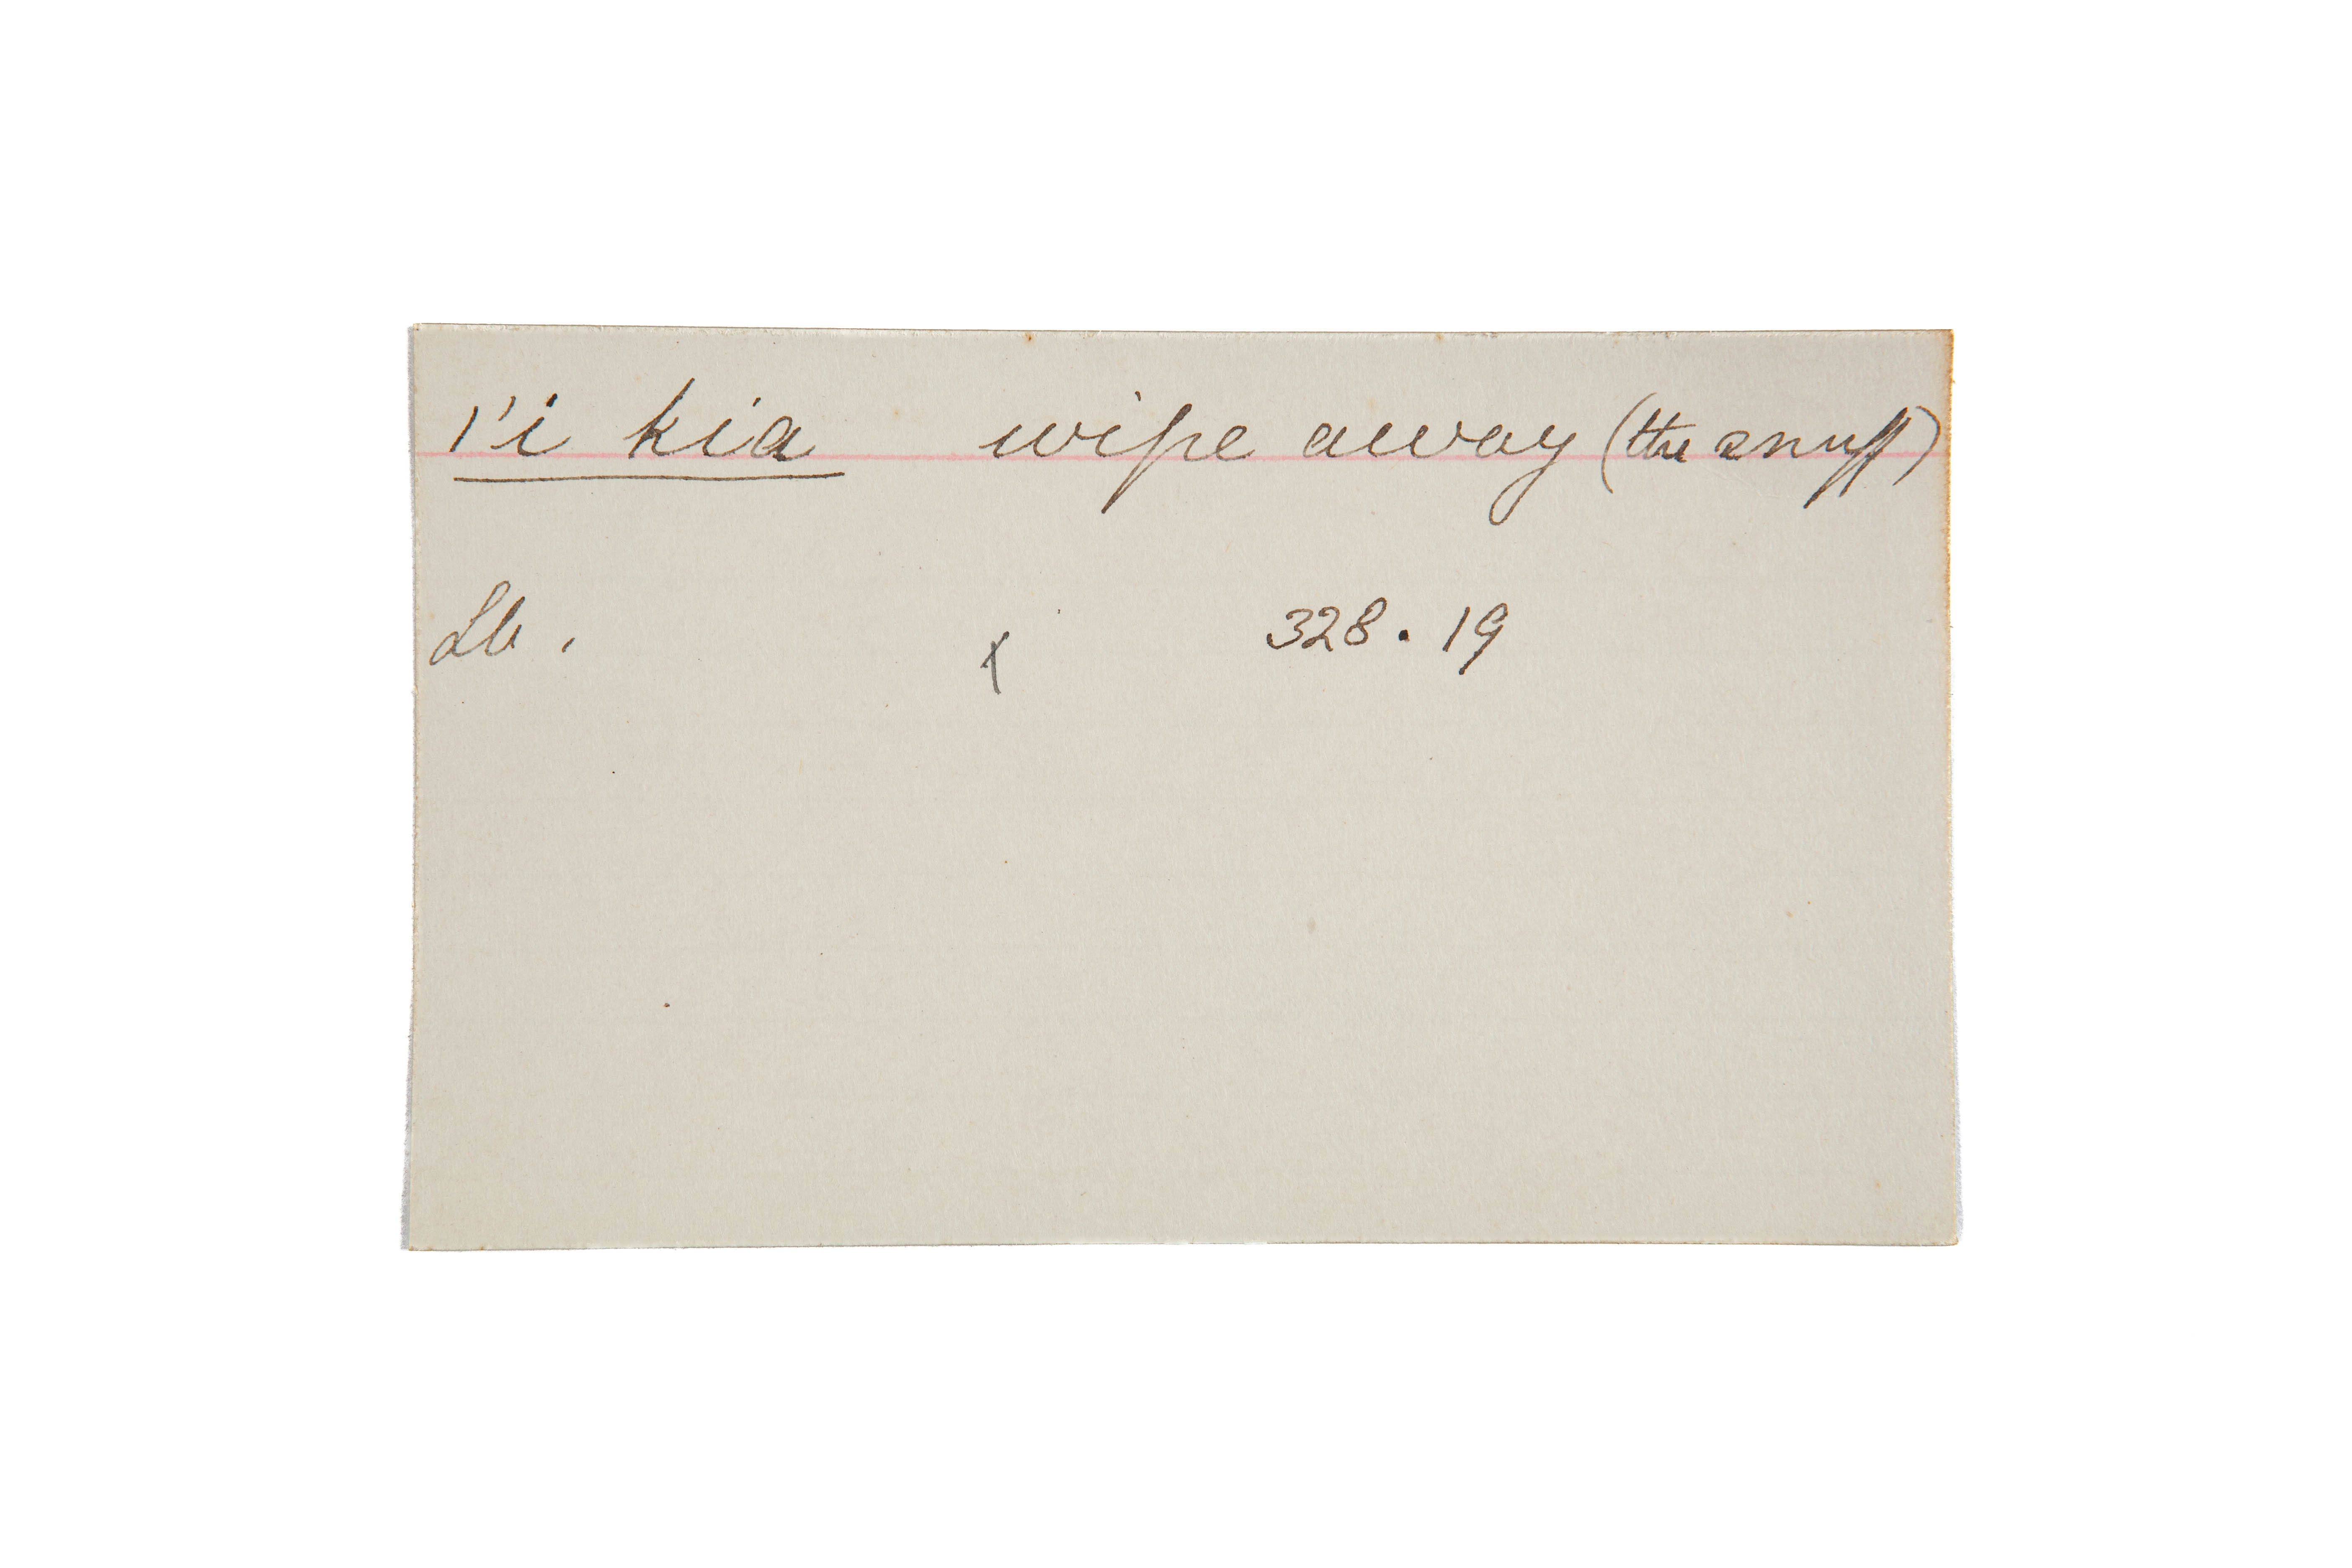 !'i kia wipe away (the snuff)
Lb. x 328.19